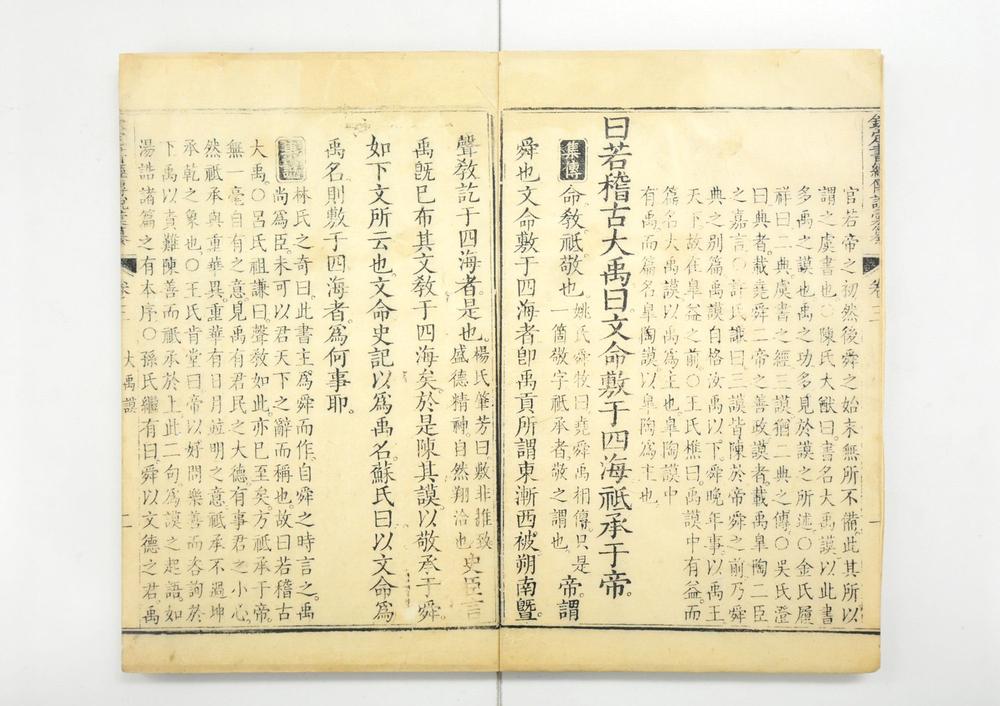 官若帝之初然後舜之始末無所不備此其所以
謂之虞書也〇陳氏大猷曰書名大禹謨以此書
多禹之謨也禹之功多見於謨之所述〇金氏履
祥曰二典虞書之經三謨猶二典之傳〇吳氏澄
曰典者載堯舜二帝之善政謨者載禹皋陶二臣
之嘉言〇許氏謙曰三謨皆陳於帝舜之前乃舜
典之別篇禹謨自格汝禹以下舜晚年事以禹王
天下故在皋益之前〇王氏樵曰禹謨中有益而
篇名大禹謨以禹為主也皋陶謨中
有禹而篇名皋陶謨以皋陶為主也
曰若稽古大禹曰文命敷于四海祗承于帝
集傳 命教祗敬也 姚氏舜牧曰堯舜禹相傳只是
一箇敬字祗承者敬之謂也 帝謂
舜也文命敷于四海者卽禹貢所謂東漸西被朔南曁
聲教訖于四海者是也 楊氏肇芳曰敷非推致
盛德精神自然翔洽也 史臣言
禹旣已布其文教于四海矣於是陳其謨以敬承于舜
如下文所云也文命史記以為禹名蘇氏曰以文命為
禹名則敷于四海者為何事耶
林氏之奇曰此書主為舜而作自舜之時言之禹
尚為臣未可以君天下之辭而稱也故曰若稽古
大禹〇呂氏祖謙曰聲教如此亦已至矣方祗承于帝
無一毫自有之意見禹有君民之大德有事君之小心
然祗承與重華異重華有日月竝明之意祗承不過坤
承乾之象也〇王氏肯堂曰帝以好問樂善而咨詢於
下禹以責難陳善而祗承於上此二句為謨之起語如
湯誥諸篇之有本序〇孫氏繼有曰舜以文德之君禹
大禹謨
二